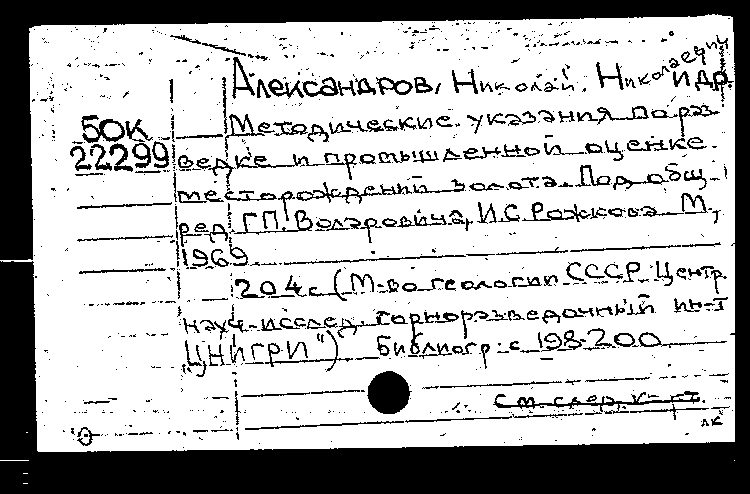 Александров, Николай Николаевич
и др.
БОК
22299
Методические указания по раз-
ведке и промышленной оценке
месторождений золота. Под общ.
ред. Г.П. Воларовича, И.С. Рожкова. М.,
1969.
204 с (М-во геологии СССР. Центр.
науч.-исслед. горноразведочный ин-т
"ЦНИГРИ") Библиогр: с 198-200
см. след. к-рт.
лк